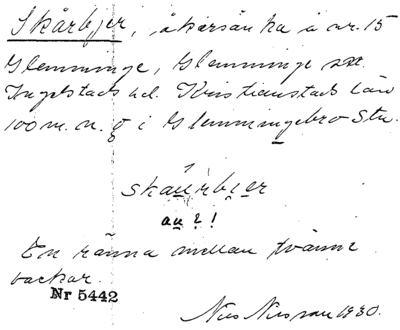 Skårbjer, åkersänka å nr. 15
Glemminge, Glemminge sn.
Ingelstads hd. Kristianstads län
100 m. n. g i Glemmingebro Stn.
skaurbier
au ? !
En ränna mellan tvänne
backar.
Nr 5442
Nils Nilsson 1930.